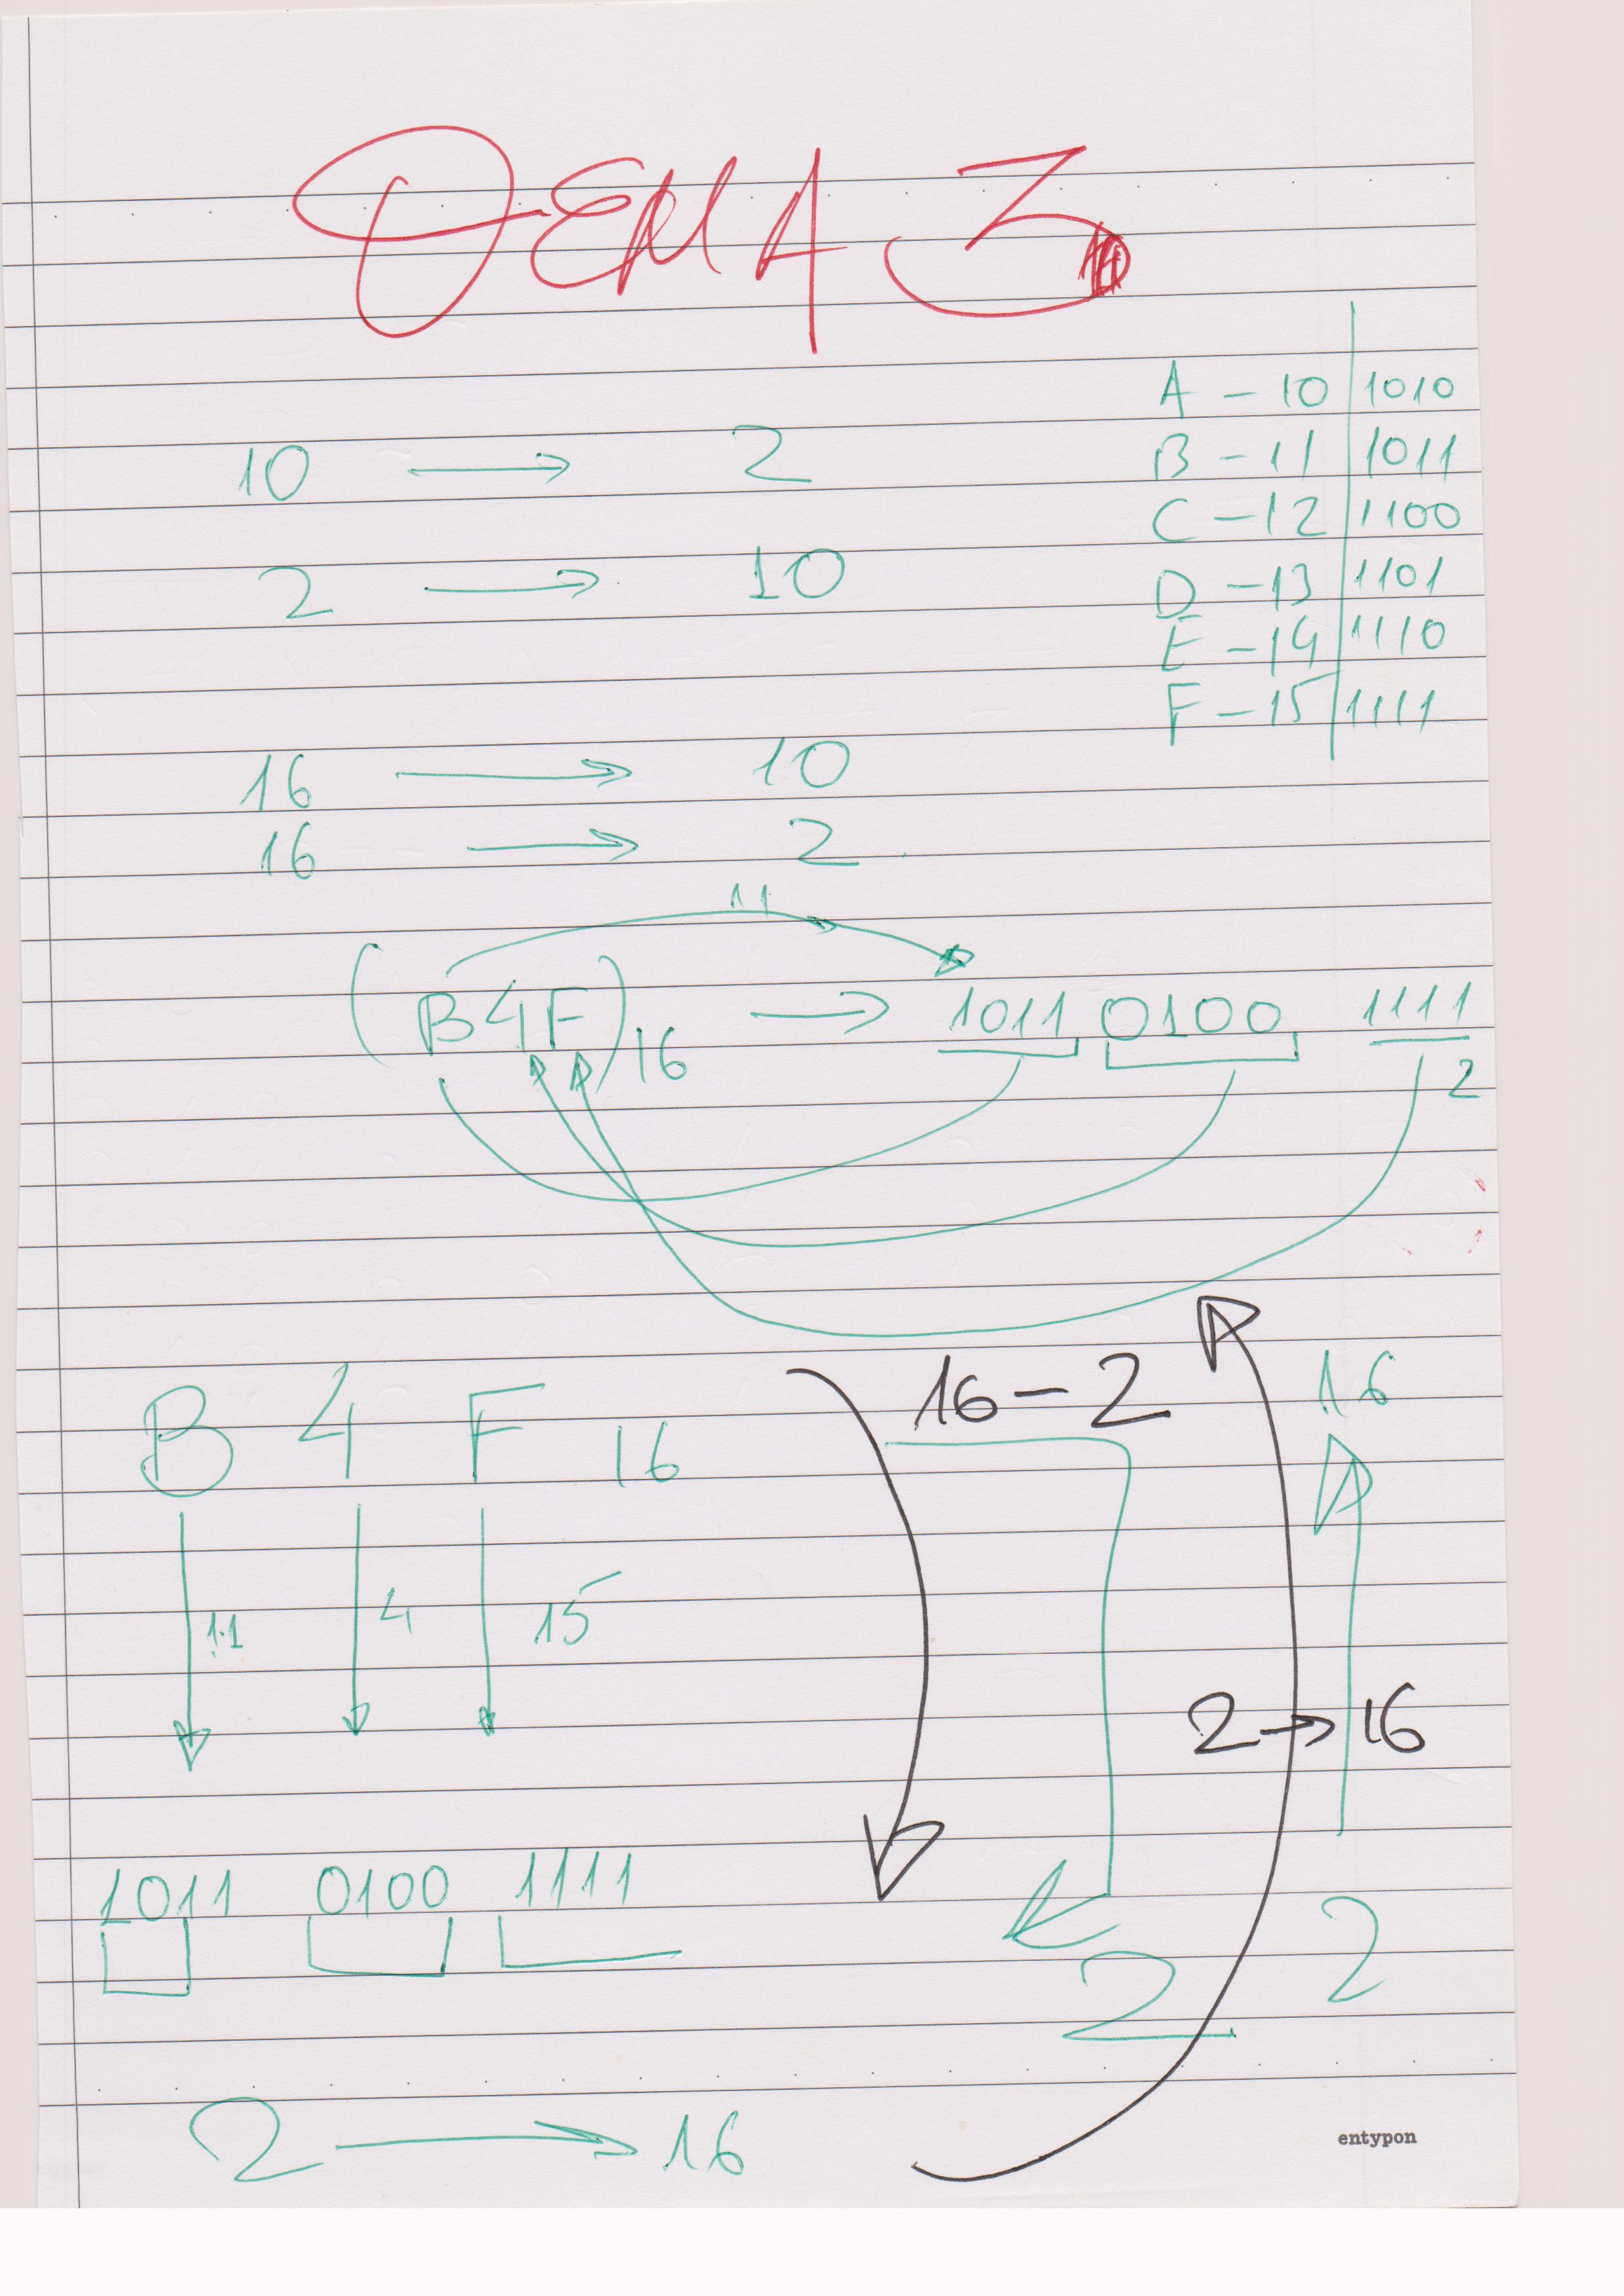 ΘΕΜΑ 3
A - 10 | 1010
10 → 2
B - 11 | 1011
C - 12 | 1100
2 → 10
D - 13 | 1101
E - 14 | 1110
F - 15 | 1111
16 → 10
16 → 2
11
(B4F)16 → 1011 0100 1111 2
B 4 F 16
16 - 2
16
11 4 15
2 → 16
1011 0100 1111
2
2
2 → 16
entypon